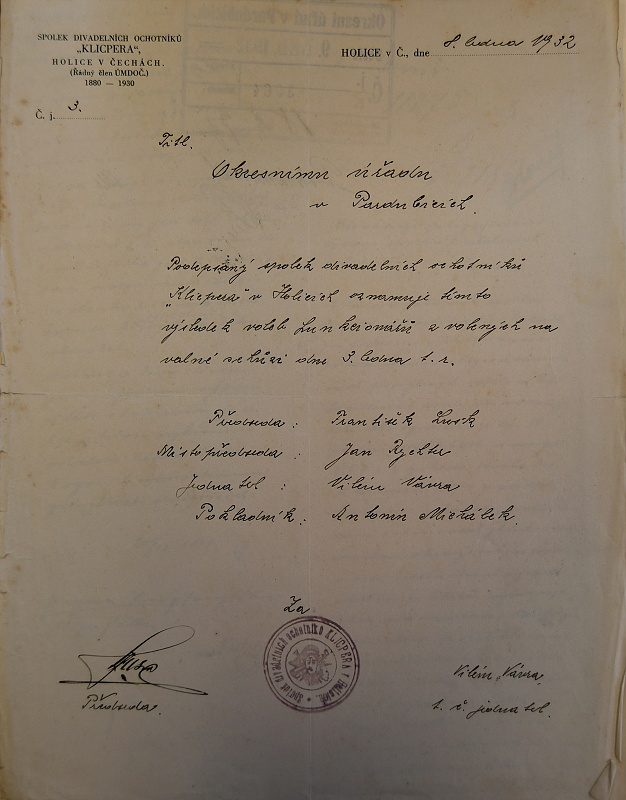 SPOLEK DIVADELNÍCH OCHOTNÍKŮ
„KLICPERA“,
HOLICE V ČECHÁCH.
(Řádný člen ÚMDOČ.)
1880 — 1930
HOLICE v Č., dne 8. ledna 1932
Č. j. 3.
Titl.
Okresnímu úřadu
v Pardubicích.
Podepsaný spolek divadelních ochotníků
„Klicpera“ v Holicích oznamuje tímto
výsledek voleb funkcionářů zvolených na
valné schůzi dne 3. ledna t. r.
Předseda : František
Místopředseda : Jan Rychtr
Jednatel : Vilém Vávra
Pokladník : Antonín Michálek.
Za
Spolek divadelních ochotníků KLICPERA v Holicích
Vilém Vávra,
Předseda.
t. č. jednatel.